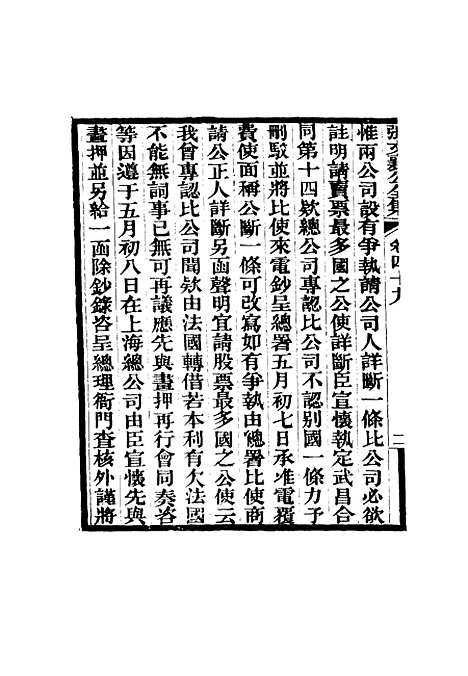 張文襄公全集 卷四十九 二
惟兩公司設有爭執請公司人詳斷一條比公司必欲
註明請賣票最多國之公使詳斷臣宣懷執定武昌合
同第十四欵總公司專認比公司不認別國一條力予
刪駁並將比使來電鈔呈總署五月初七日承准電覆
費使面稱公斷一條可改寫如有爭執由總署比使商
請公正人詳斷另函聲明宜請股票最多國之公使云
我曾專認比公司聞欵由法國轉借若本利有欠法國
不能無詞事已無可再議應先與畫押再行會同奏咨
等因遵于五月初八日在上海總公司由臣宣懷先與
畫押並另給一函除鈔錄咨呈總理衙門查核外謹將